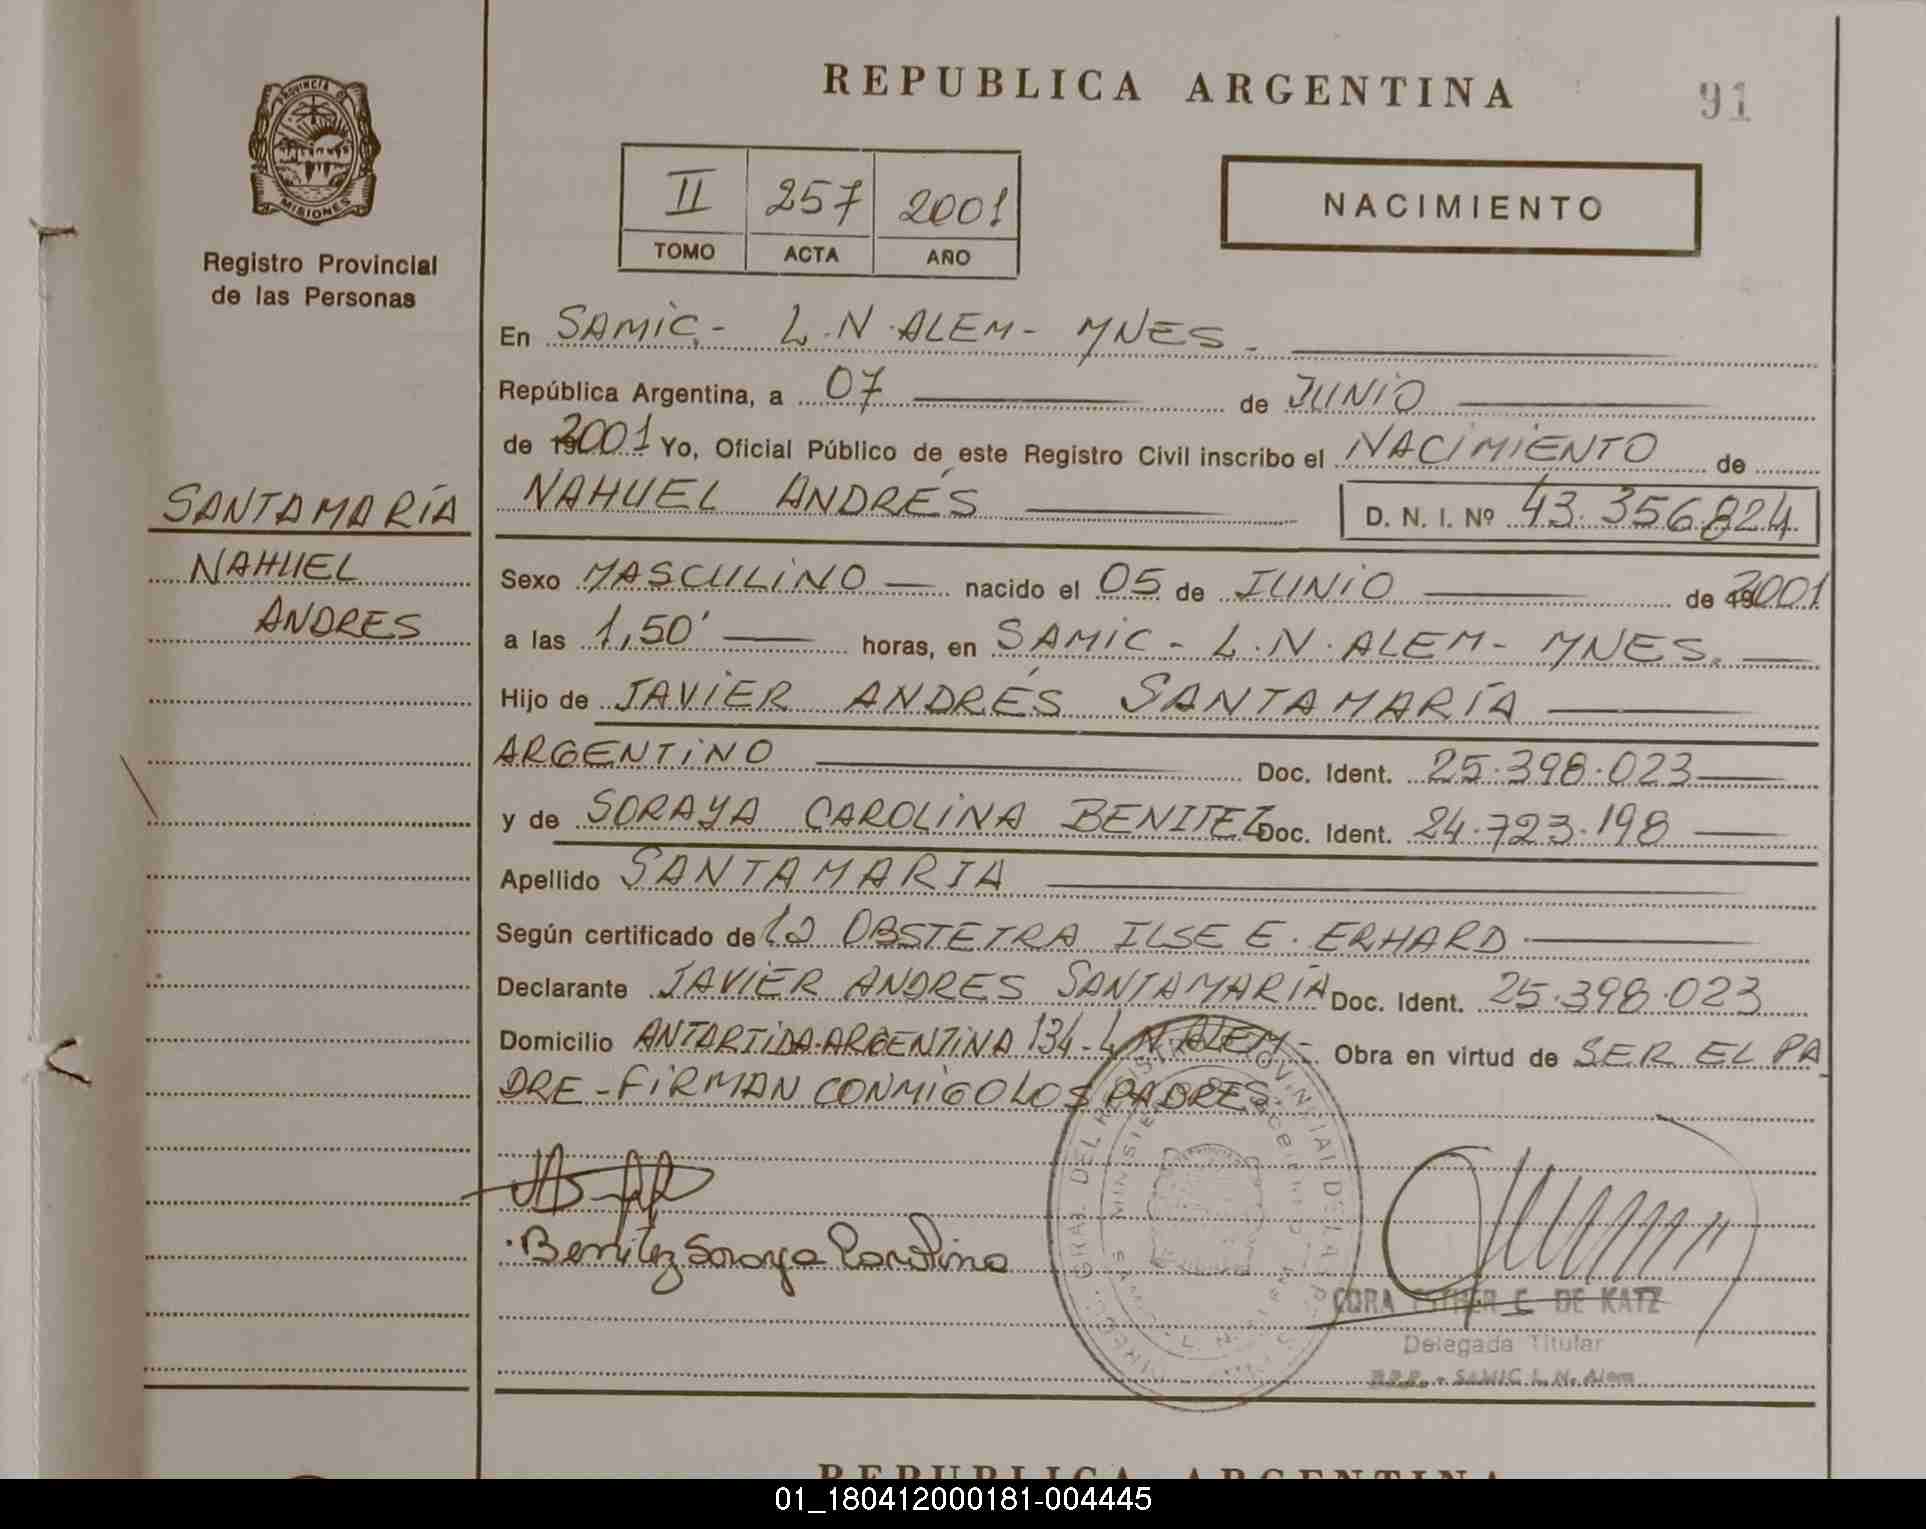 REPUBLICA ARGENTINA
91
PROVINCIA DE
MISIONES
Registro Provincial
de las Personas
II 257 2001
TOMO ACTA AÑO
NACIMIENTO
En SAMIC - L.N. ALEM - MNES -
República Argentina, a 07 de JUNIO
de 2001 Yo, Oficial Público de este Registro Civil inscribo el NACIMIENTO de
NAHUEL ANDRÉS D. N. I. Nº 43.356.824
SANTAMARÍA
NAHUEL
ANDRES
Sexo MASCULINO nacido el 05 de JUNIO de 2001
a las 1,50' horas, en SAMIC - L.N. ALEM - MNES.
Hijo de JAVIER ANDRÉS SANTAMARÍA
ARGENTINO Doc. Ident. 25.398.023
y de SORAYA CAROLINA BENITEZ Doc. Ident. 24.723.198
Apellido SANTAMARIA
Según certificado de la OBSTETRA ILSE E. ERHARD
Declarante JAVIER ANDRES SANTAMARÍA Doc. Ident. 25.398.023
Domicilio ANTARTIDA ARGENTINA 134 - L.N. ALEM - Obra en virtud de SER EL PA
DRE - FIRMAN CONMIGO LOS PADRES.
Benitez Soraya Carolina
CORA ESTHER C. DE KATZ
Delegada Titular
R.P.P. - SAMIC L. N. Alem
REPUBLICA ARGENTINA
01_180412000181-004445